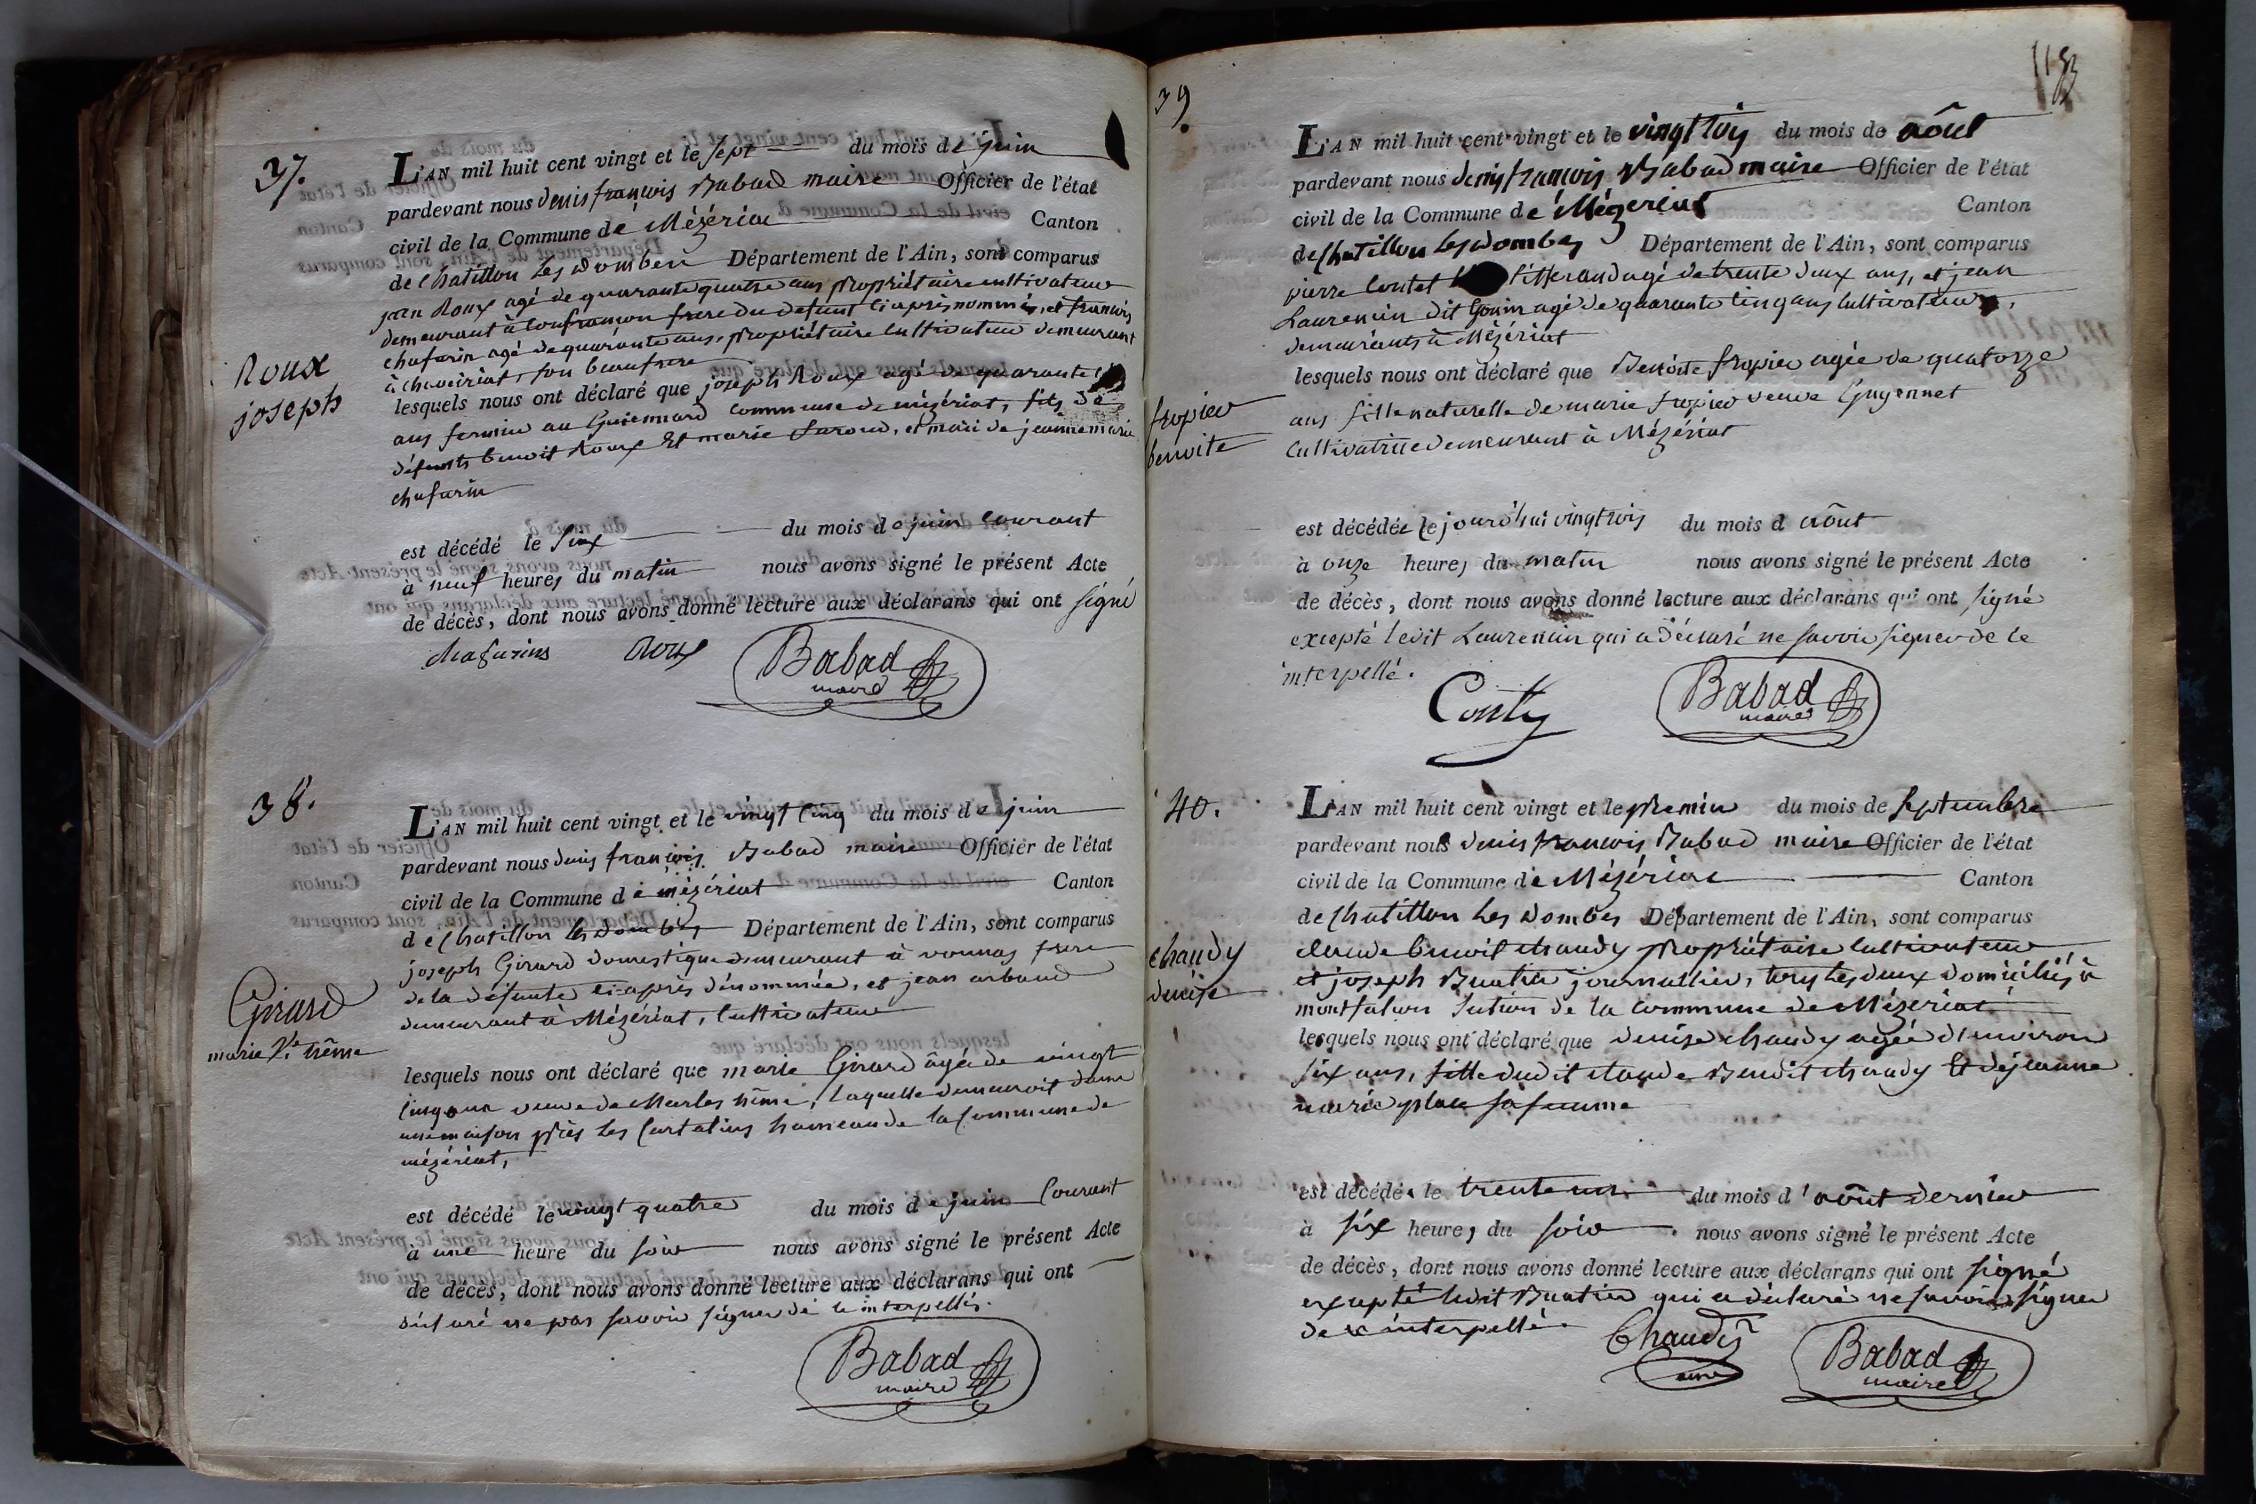 37.
L'AN mil huit cent vingt et le sept du mois de juin
pardevant nous denis françois Babad maire Officier de l'état
civil de la Commune de Mézériat Canton
de Chatillon les Dombes Département de l'Ain, sont comparus
jean Roux agé de quarante quatre ans propriétaire cultivateur
demeurant à Confrançon frere du defunt ci après nommé, et françois
chafarin agé de quarante ans, propriétaire cultivateur demeurant
à chaveiriat, son beaufrere
Roux
joseph
lesquels nous ont déclaré que joseph Roux agé de quarante
ans fermier au Guiennard commune de mézériat, fils de
défunts benoit Roux Et marie Laroud, et mari de jeanne marie
chafarin
est décédé le six du mois de juin courant
à neuf heures du matin nous avons signé le présent Acte
de décès, dont nous avons donné lecture aux déclarans qui ont signé
Chafarins Roux Babad
maire
38.
L'AN mil huit cent vingt et le vingt cinq du mois de juin
pardevant nous denis françois Babad maire Officier de l'état
civil de la Commune de mézériat Canton
de Chatillon les Dombes Département de l'Ain, sont comparus
joseph Girard domestique demeurant à vonnas frere
de la défunte ci-après dénommée, et jean arband
demeurant à Mézériat, cultivateur
Girard
marie
lesquels nous ont déclaré que marie Girard âgée de vingt
cinq ans veuve de Charles laquelle demeuroit dans
une maison près les Curtalins hameau de la Commune de
mézériat,
est décédé le vingt quatre du mois de juin Courant
à une heure du soir nous avons signé le présent Acte
de décès, dont nous avons donné lecture aux déclarans qui ont
déclaré ne pas savoir signer de ce interpellés.
Babad
maire
39.
L'AN mil huit cent vingt et le vingt trois du mois de aôut
pardevant nous denis françois Babad maire Officier de l'état
civil de la Commune de Mézeriat Canton
de Chatillon les Dombes Département de l'Ain, sont comparus
pierre Contet tisserand agé de trente deux ans, et jean
Laurencin dit Gonin agé de quarante cinq ans cultivateur,
demeurants à Mézériat
fropier
benoite
lesquels nous ont déclaré que Benoite fropier agée de quatorze
ans fille naturelle de marie fropier veuve Guyennet
Cultivatrice demeurant à Mézériat
est décédée le jourd'hui vingt trois du mois d aôut
à onze heures du matin nous avons signé le présent Acte
de décès, dont nous avons donné lecture aux déclarans qui ont signé
excepté ledit Laurencin qui a déclaré ne savoir signer de ce
interpellé.
Babad
maire
40.
L'AN mil huit cent vingt et le premier du mois de septembre
pardevant nous denis françois Babad maire Officier de l'état
civil de la Commune de Mézériat Canton
de Chatillon les Dombes Département de l'Ain, sont comparus
claude benoit chaudy propriétaire cultivateur
et joseph Buatier journallier, tous les deux domiciliés à
montfalcon section de la commune de Mézeriat
chaudy
denise
lesquels nous ont déclaré que denise chaudy agée d'environ
six ans, fille dudit claude Benoit chaudy et de jeanne
marie place sa femme
est décédé le trente un du mois d'aôut dernier
à six heures du soir nous avons signé le présent Acte
de décès, dont nous avons donné lecture aux déclarans qui ont signé
excepté ledit Buatier qui a déclaré ne savoir signer
de ce interpellé.
Chaudy Babad
maire